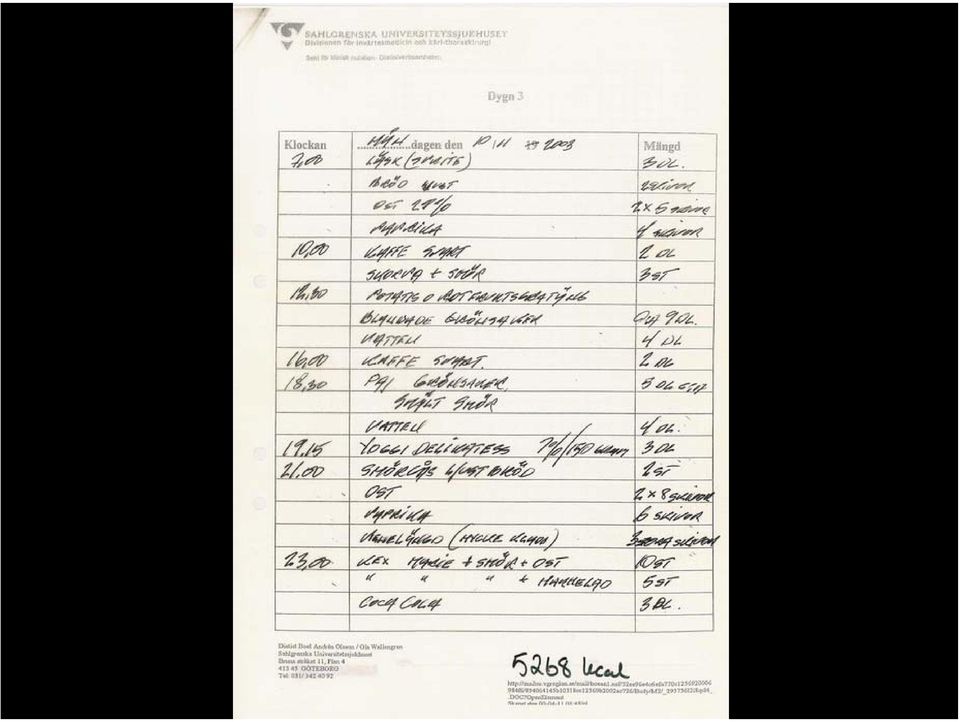 SAHLGRENSKA UNIVERSITETSSJUKHUSET
Divisionen för invärtesmedicin och kärl-thoraxkirurgi
Sekt för klinisk nutrition - Dietistverksamheten
Dygn 3
Klockan MÅN dagen den 10/11 2003 Mängd
7,00 LÄSK (SPRITE) 3 DL.
BRÖD LJUST 2 SKIVOR
OST 28% 2 x 5 SKIVOR
PAPRIKA 4 SKIVOR
10,00 KAFFE SVART 2 DL
SKORPA + SMÖR 3 ST
12,30 POTATIS O ROTFRUKTSGRATÄNG
BLANDADE GRÖNSAKER 9 DL.
VATTEN 4 DL
16,00 KAFFE SVART. 2 DL
18,30 PAJ GRÖNSAKER, 5 DL
SMÄLT SMÖR
VATTEN 4 DL.
19.15 YOGGI DELIKATESS /150 3 DL
21.00 SMÖRGÅS LJUST BRÖD 2 ST
OST 2 x 8 SKIVOR
PAPRIKA 6 SKIVOR
3 SKIVOR
23,00 KEX MARIE + SMÖR + OST 10 ST
" " " + MARMELAD 5 ST
COCA COLA 3 DL.
Dietist Boel Andrén Olsson / Ola Wallengren
Sahlgrenska Universitetssjukhuset
Bruna stråket 11, Plan 4
413 45 GÖTEBORG
Tel: 031/ 342 40 92
5268 kcal